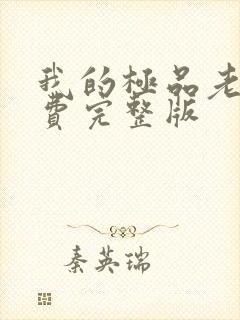 我的極品老
費完整版
秦英瑞